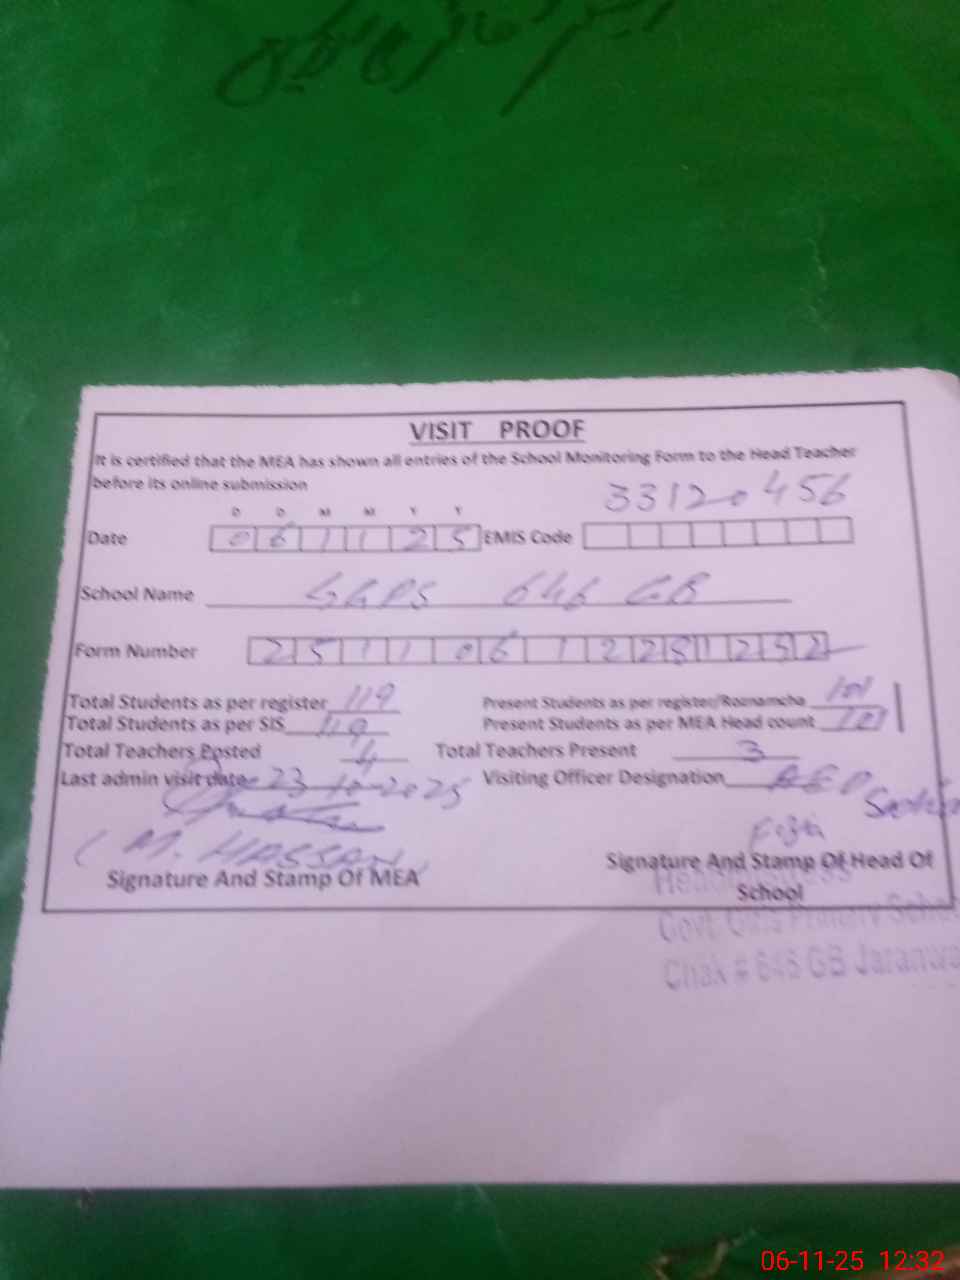 VISIT PROOF
It is certified that the MEA has shown all entries of the School Monitoring Form to the Head Teacher
before its online submission
33120456
D D M M Y Y
Date 0 6 1 1 2 5 EMIS Code
School Name GGPS 646 GB
Form Number 2 5 1 1 0 6 1 2 2 5 1 2 5 2
Total Students as per register 119 Present Students as per register/Roznamcha 101
Total Students as per SIS 119 Present Students as per MEA Head count 101
Total Teachers Posted 4 Total Teachers Present 3
Last admin visit date 23-10-2025 Visiting Officer Designation AEO
(M. HASSAN)
Signature And Stamp Of MEA Signature And Stamp Of Head Of
School
Headmistress
Govt. Girls Primary School
Chak # 646 GB Jaranwa
06-11-25 12:32